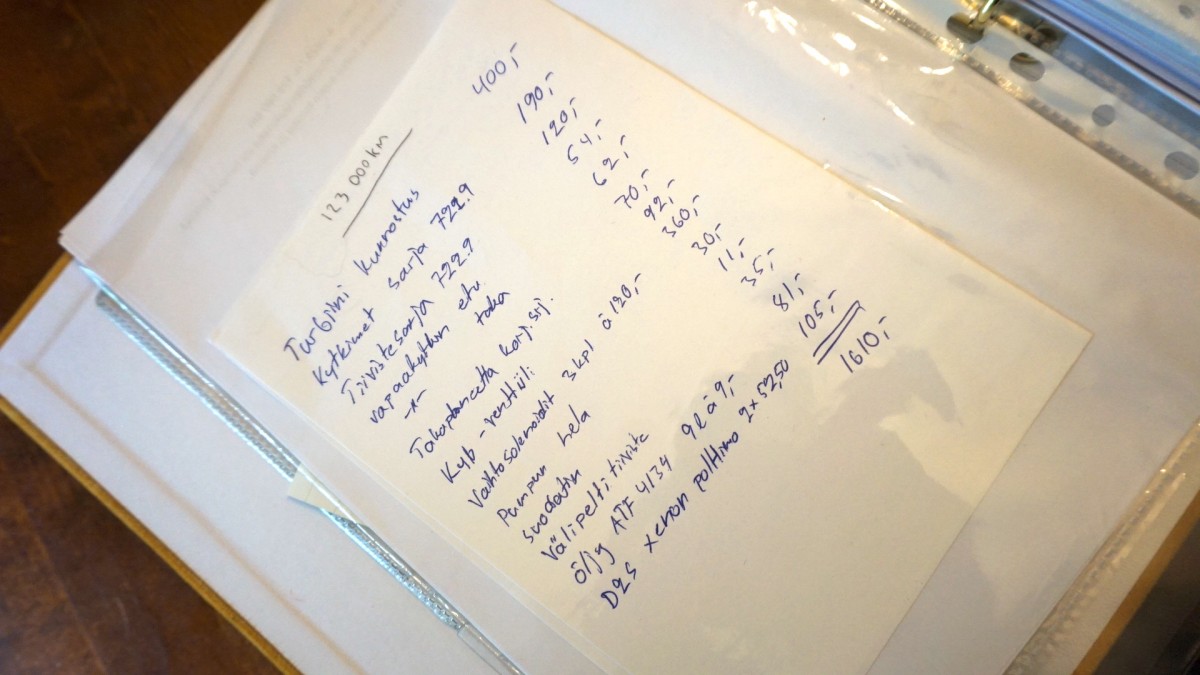 123 000 km
Turbiini kunnostus 400,-
Kytkimet sarja 722.9 190,-
Tiivistesarja 722.9 120,-
vapaakytkin etu 54,-
-"- taka 62,-
Takaplaneetta korj.srj. 70,-
Kyb-venttiili 92,-
Vaihtosolenoidit 3 kpl á 120,- 360,-
Pumpun hela 30,-
suodatin 11,-
Välipeltitiiviste 35,-
öljy ATF 4134 9L á 9,- 81,-
D2S xenon polttimo 2x52,50 105,-
1610,-